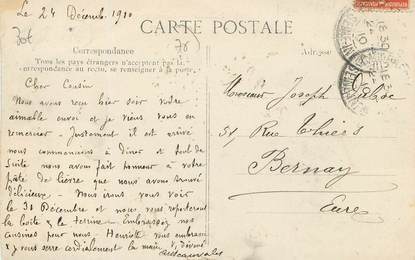 Le 24 Décemb. 1910
CARTE POSTALE
Correspondance
Tous les pays étrangers n'acceptent pas la
correspondance au recto, se renseigner à la poste.
Adresse
Cher Cousin
Nous avons reçu hier soir votre
aimable envoi et je viens vous en
remercier. Justement il est arrivé
nous commencions à dîner et tout de
suite nous avons fait honneur à votre
pâté de lièvre que nous avons trouvé
délicieux. Nous irons vous voir
le 31 Décembre et nous vous reporterons
la boîte & la terrine. Embrassez nos
cousines pour nous. Henriette vous embrasse
& je vous serre cordialement la main
Monsieur Joseph
31, Rue Thiers
Bernay
Eure